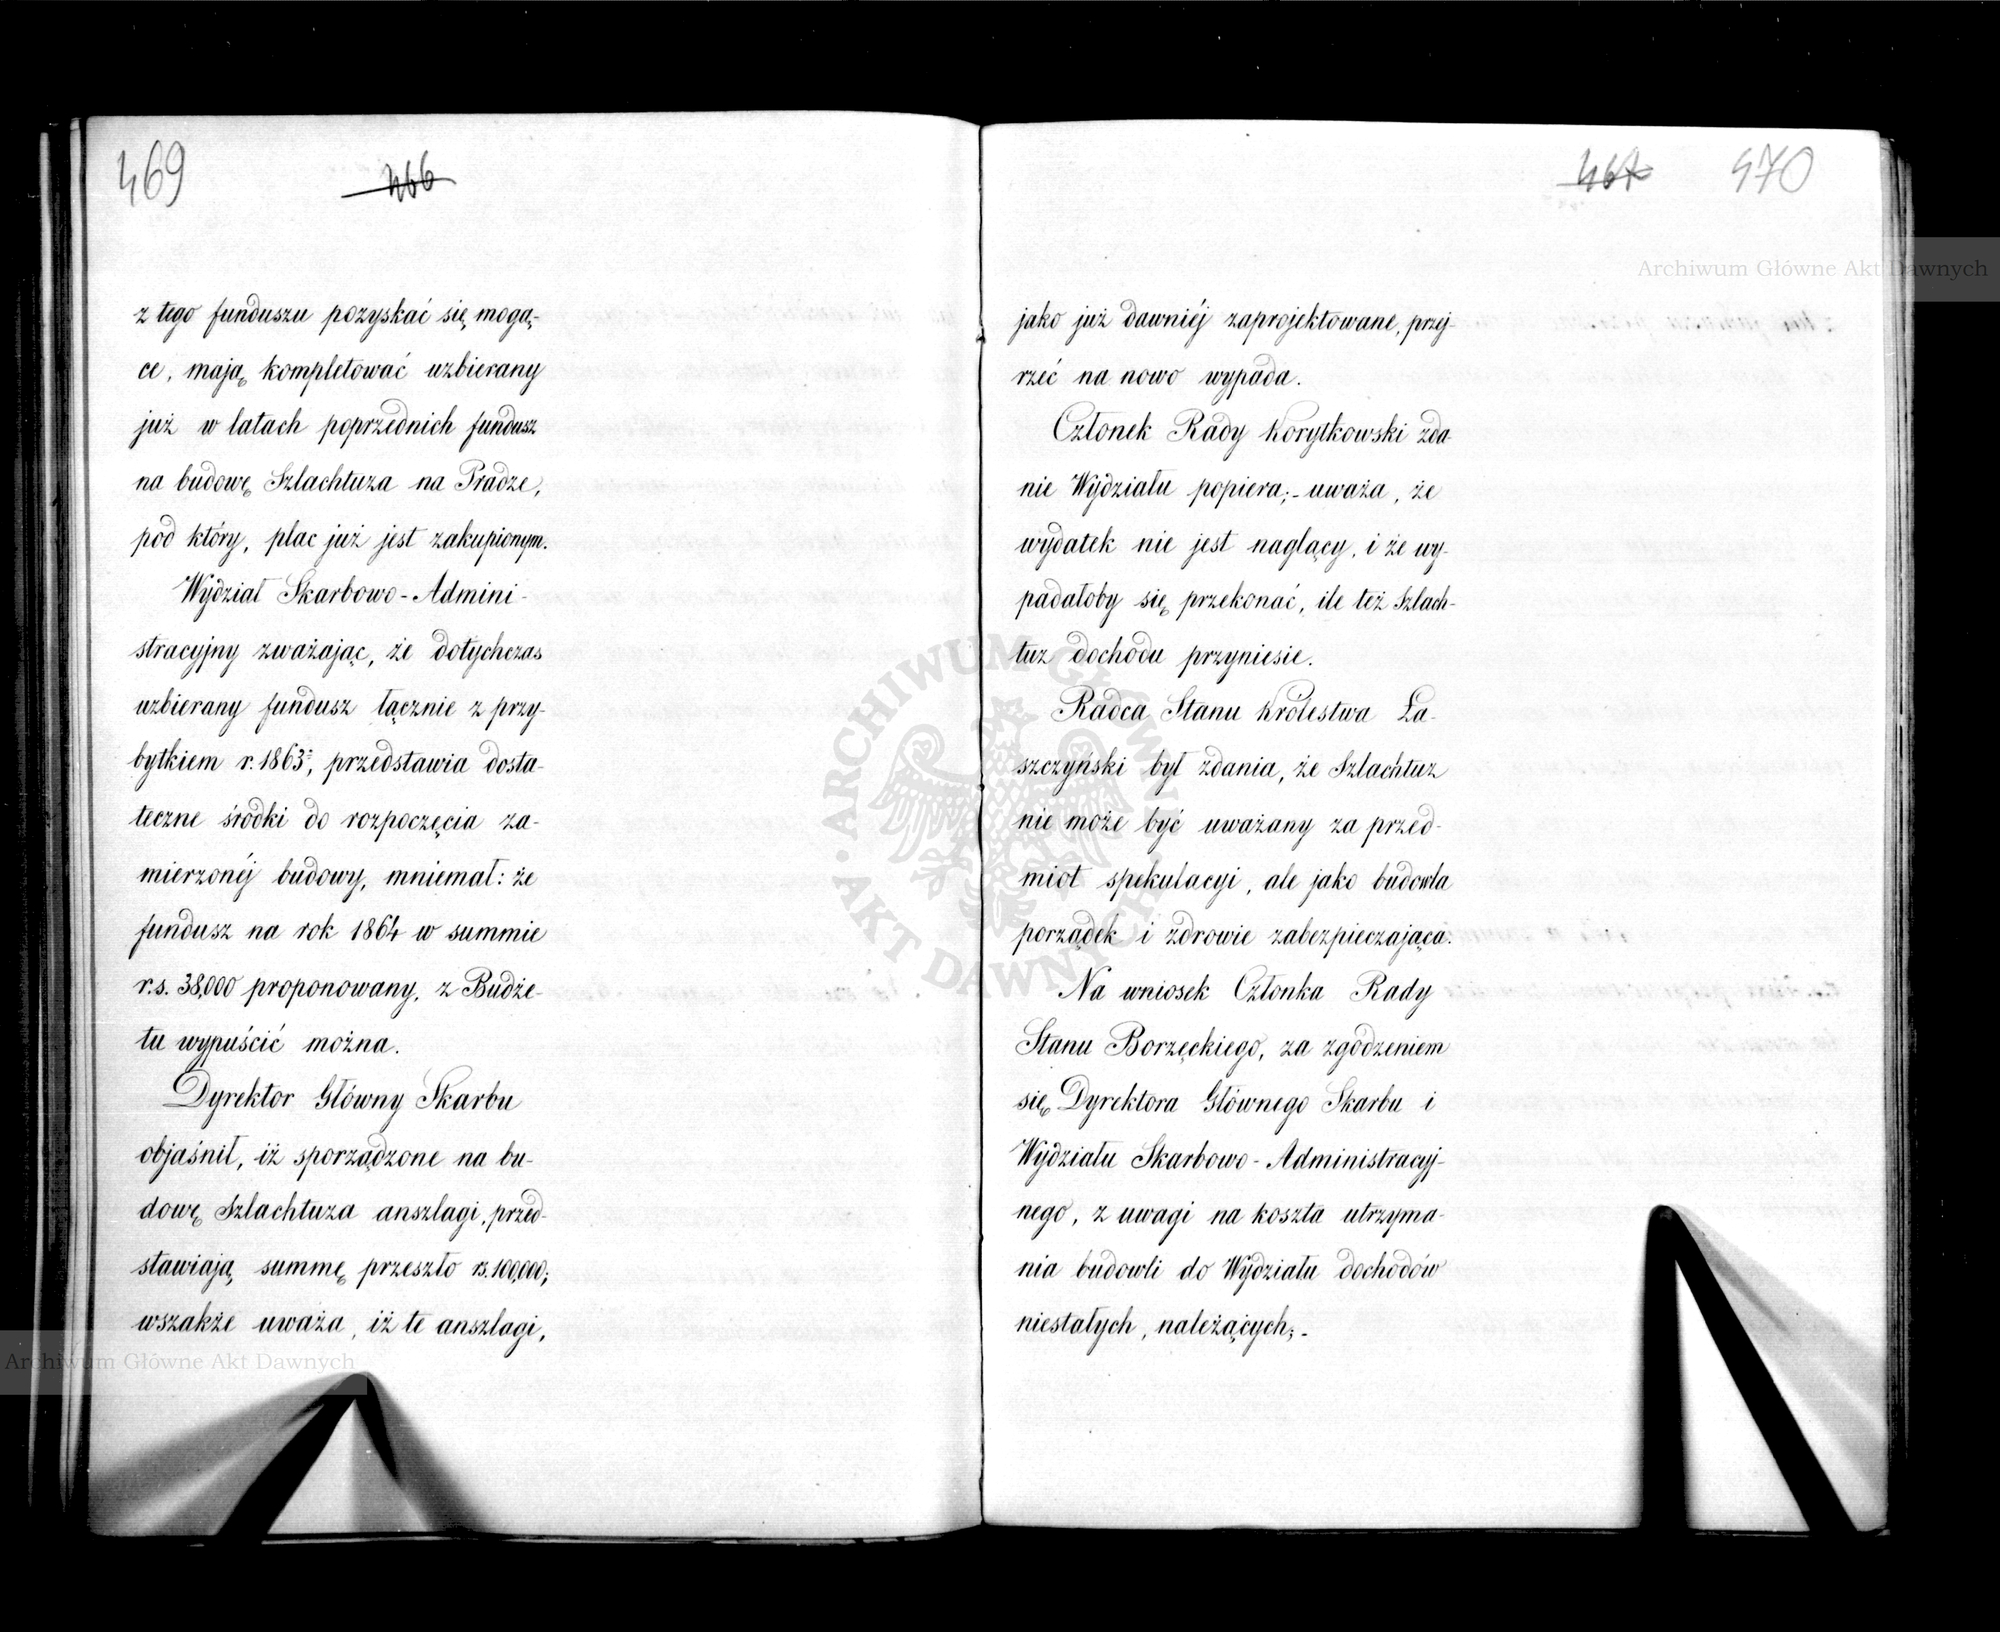 469
466
z tego funduszu pozyskać się mogą-
ce, mają kompletować uzbierany
już w latach poprzednich fundusz
na budowę Szlachtuza na Pradze,
pod który, plac już jest zakupionym.
Wydział Skarbowo-Admini-
stracyjny zważając, że dotychczas
uzbierany fundusz łącznie z przy-
bytkiem r. 1863, przedstawia dosta-
teczne środki do rozpoczęcia za-
mierzonéj budowy, mniemał: że
fundusz na rok 1864 w summie
r.s. 38,000 proponowany, z Budże-
tu wypuścić można.
Dyrektor Główny Skarbu
objaśnił, iż sporządzone na bu-
dowę Szlachtuza anszlagi, przed-
stawiają summę przeszło rs. 100,000;
wszakże uważa, iż te anszlagi,
467 470
jako już dawniéj zaprojektowane, przej-
rzeć na nowo wypada.
Członek Rady Korytkowski zda-
nie Wydziału popiera; - uważa, że
wydatek nie jest naglący, i że wy-
padałoby się przekonać, ile też Szlach-
tuz dochodu przyniesie.
Radca Stanu Królestwa Ła-
szczyński był zdania, że Szlachtuz
nie może być uważany za przed-
miot spekulacyi, ale jako budowla
porządek i zdrowie zabezpieczająca.
Na wniosek Członka Rady
Stanu Borzęckiego, za zgodzeniem
się Dyrektora Głównego Skarbu i
Wydziału Skarbowo-Administracyj-
nego, z uwagi na koszta utrzyma-
nia budowli do Wydziału dochodów
niestałych, należących; -
Archiwum Główne Akt Dawnych
ARCHIWUM GŁÓWNE AKT DAWNYCH
Archiwum Główne Akt Dawnych